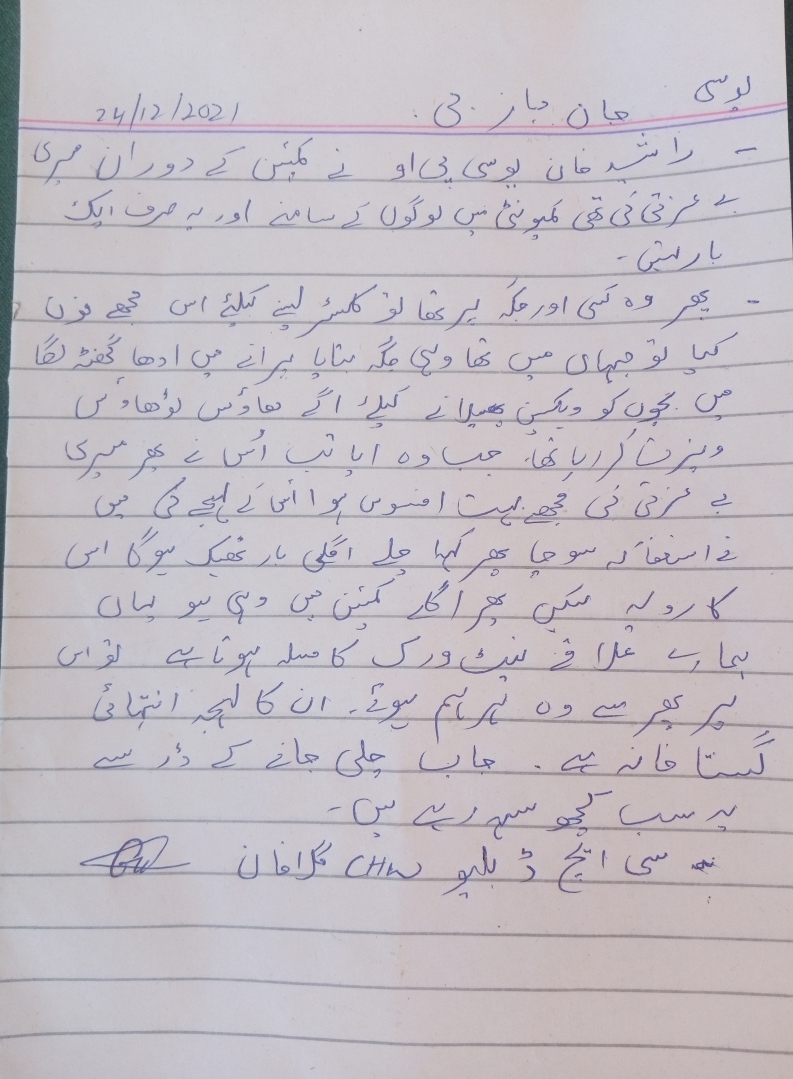 یوسی جان باز جی. 24/12/2021
- راشد خان یوسی پی او نے کمپئن کے دوران میری
بے عزتی کی تھی کمیونٹی میں لوگوں کے سامنے اور یہ صرف ایک
بار نہیں -
- پھر وہ کسی اور جگہ پر تھا تو کلسٹر لینے کیلئے اس مجھے فون
کیا تو جہاں میں تھا وہی جگہ بتایا پر آنے میں ادھا گھنٹہ لگا
میں بچوں کو ویکسین پھیلانے کیلئے اگے ھاؤس ٹو ھاؤس
ویزٹ کر رہا تھا. جب وہ آیا تب اُس نے پھر میری
بے عزتی کی مجھے بہت افسوس ہوا اُس کے لہجے کی میں
نے استعفا کہ سوچا پھر کہا چلے اگلی بار ٹھیک ہوگا اس
کا رویہ لیکن پھر اگلے کمپئن میں وہی ہو یہاں
ہمارے علاقے نیٹ ورک کا مسلہ ہوتا ہے تو اس
پر پھر سے وہ برہم ہوئے. ان کا لہجہ انتہائی
گستا خانہ ہے. جاب چلی جانے کے ڈر سے
یہ سب کچھ سہہ رہے ہیں -
سی ایچ ڈبلیو CHW